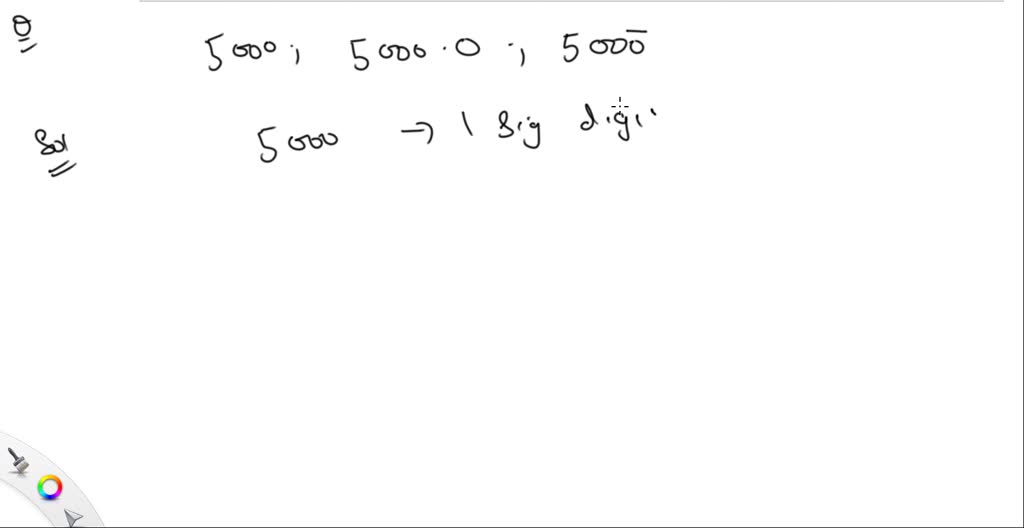 Q 5000 ; 5000.0 ; 5000̅
Sol 5000 → 1 sig digi